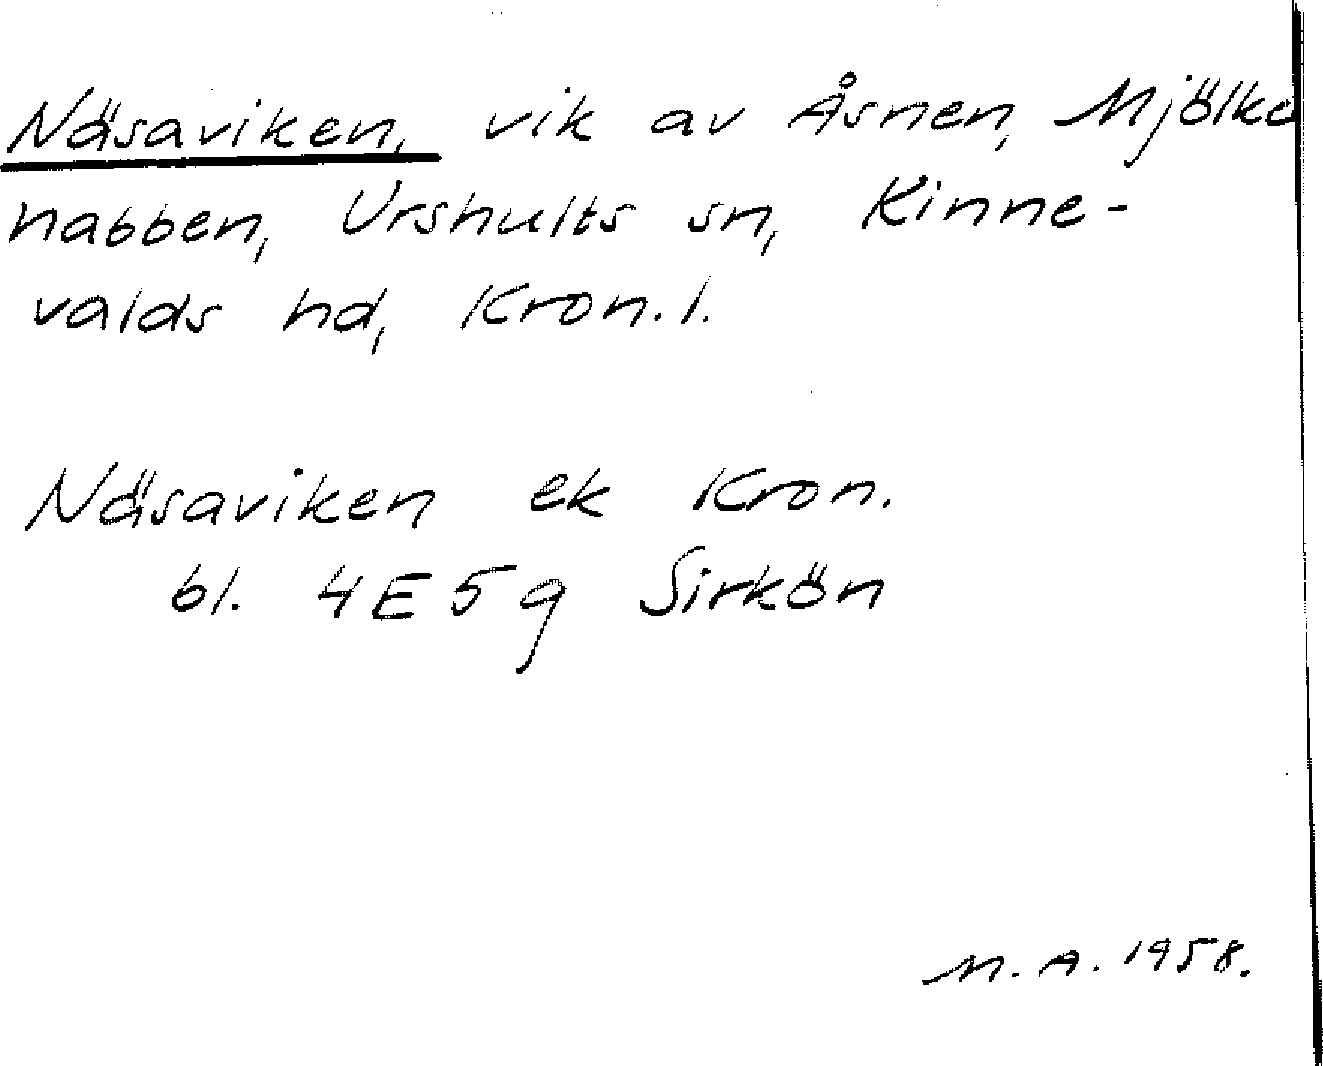 Näsaviken, vik av Åsnen, Mjölka
nabben, Urshults sn, Kinne-
valds hd, Kron. l.
Näsaviken ek Kron.
bl. 4E5g Sirkön
M. A. 1958.